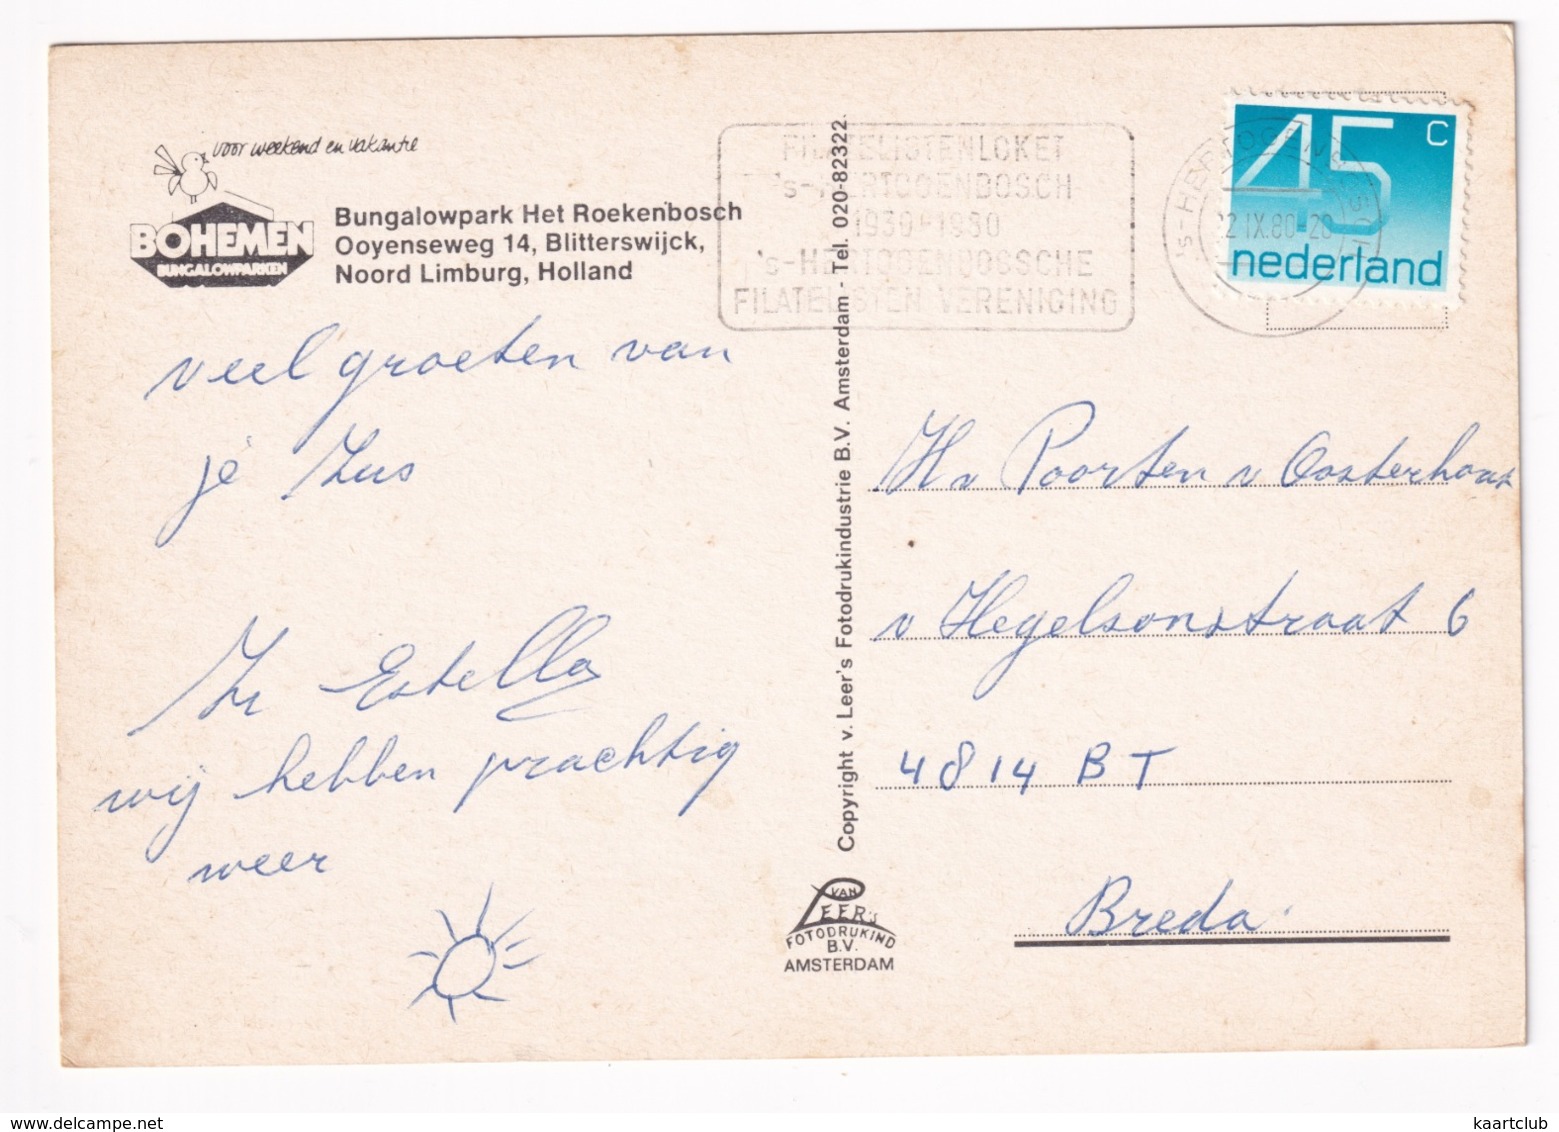 voor weekend en vakantie
BOHEMEN
BUNGALOWPARKEN
Bungalowpark Het Roekenbosch
Ooyenseweg 14, Blitterswijck,
Noord Limburg, Holland
veel groeten van
je Zus
Estella
wij hebben prachtig
weer
Copyright v. Leer's Fotodrukindustrie B.V. Amsterdam - Tel. 020-82322
VAN
LEER's
FOTODRUKIND
B.V.
AMSTERDAM
FILATELISTENLOKET
's-HERTOGENBOSCH
1930-1980
's-HERTOGENBOSSCHE
FILATELISTEN VERENIGING
's-HERTOGENBOSCH
2 IX.80-20
45 c
nederland
H v Poorten v Oosterhout
v Hegelsonstraat 6
4814 BT
Breda
kaartclub